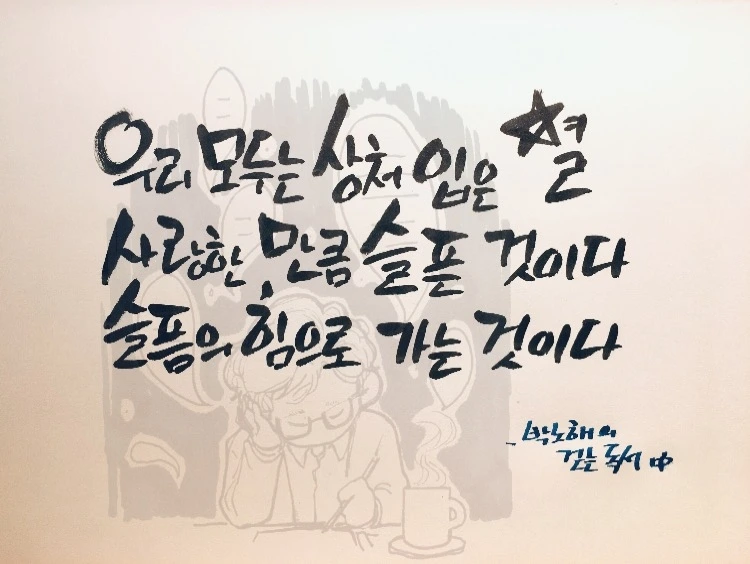 우리 모두는 상처 입은 별
사랑한 만큼 슬픈 것이다
슬픔의 힘으로 가는 것이다
- 박노해의
걷는 독서 中